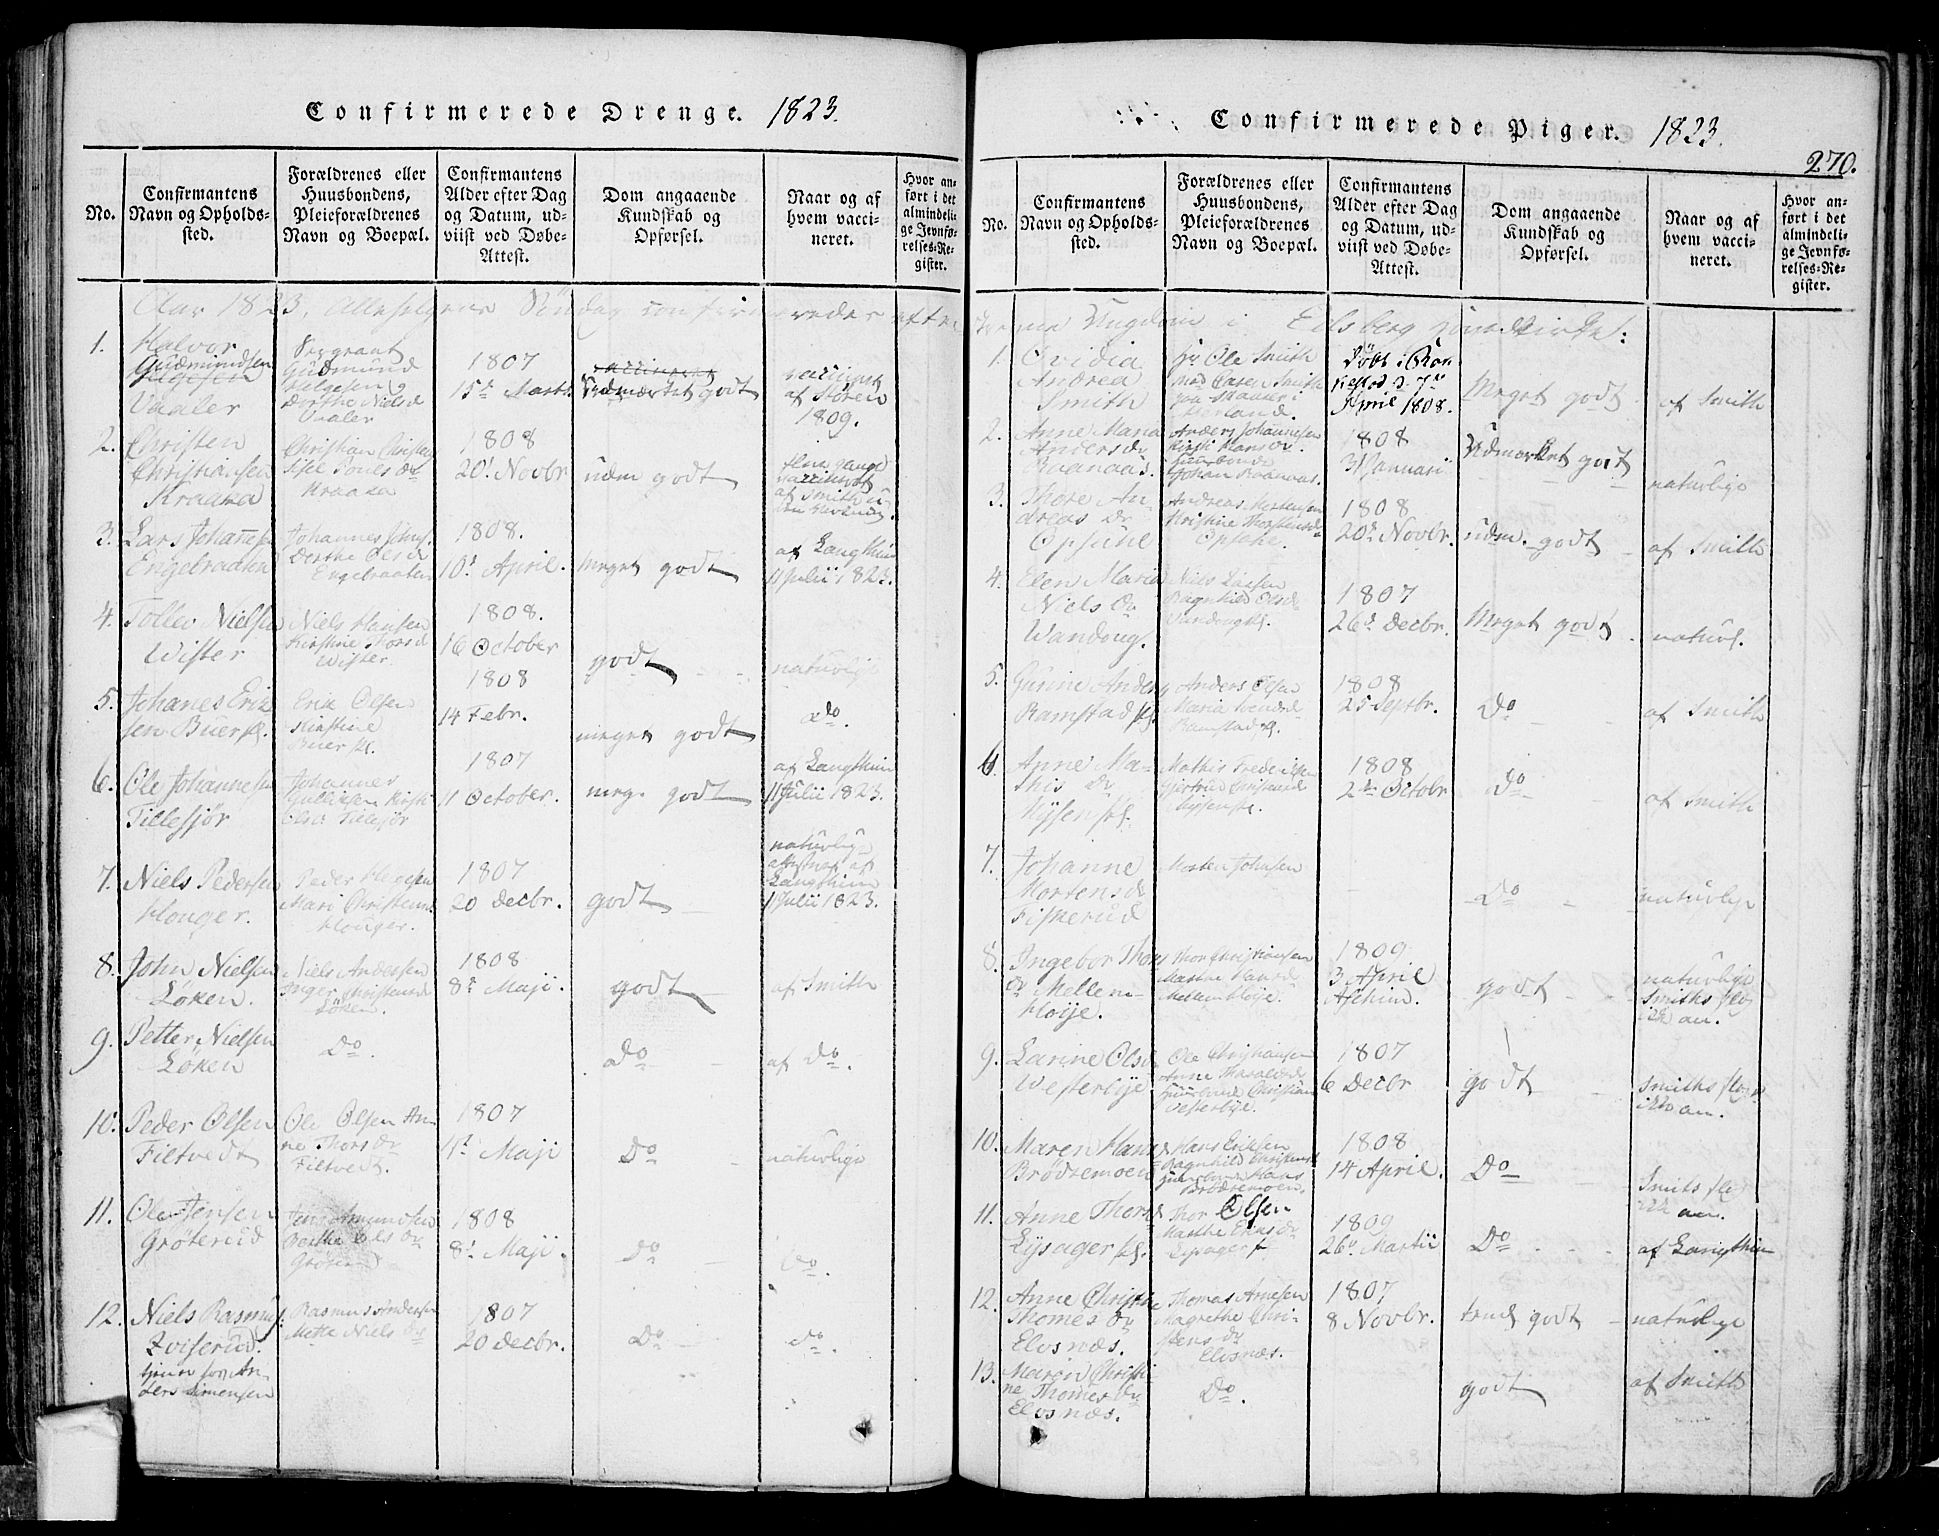 Confirmerede Drenge. 1823.
No.
Confirmantens
Navn og Opholds-
sted.
Forældrenes eller
Huusbondens,
Pleieforældrenes
Navn og Boepæl.
Confirmantens
Alder efter Dag
og Datum, ud-
viist ved Døbe-
Attest.
Dom angaaende
Kundskab og
Opførsel.
Naar og af
hvem vacci-
neret.
Hvor an-
ført i det
almindeli-
ge Jevnfø-
relses-Re-
gister.
Aar 1823, Allehelgens Søndag confirmeredes efter
1. Halvor
Gudmundsen
Vaaler
Sergeant
Gudmund
Helgesen og
Dorthe Nielsd
Vaaler
1807
15d Marti
Udmærket godt
vaccineret
af Støren
1809.
2. Christen
Christiansen
Kraaka
Christian Christens
Kraaka
1808
20d Novbr
udm godt
3. Lars Johannesen
Engebraaten
Johannes Johns.
Dorthe Olsd
Engebraaten
1808.
10d April.
meget godt
af Langthim
11 Julii 1823.
4. Tollev Nielsen
Wister
Niels Hansen
Kirstine Torsd
Wister.
1808.
16 October
godt
naturlige
5. Johanes Erik
sen Buer pl.
Erik Olsen
Kirstine
Buer pl.
1808
14 Febr.
meget godt
do.
6. Ole Johannesen
Tillesjør
Johannes
Gulliksen Kirsti
Olsd Tillesjør
1807
11 October.
mege godt
af Langthim
11 Julii 1823.
7. Niels Pedersen
Houger.
Peder Helgesen
Mari Christens
Houger.
1807
20 Decbr.
godt
naturlige
attesteret af
Langthim
11 Julii 1823.
8. John Nielsen
Løken.
Niels Andersen
Inger Christensd
Løken.
1808
8d Maji
godt
af Smith
9. Petter Nielsen
Løken
Do.
Do
af Do.
10. Peder Olsen
Filtvedt
Ole Olsen An-
ne Thorsdr
Filtvedt.
1807
1d Maji
Do
naturlige
11. Ole Jensen
Grøterud
Jens Amundsen
Berthe Olsdr
1808
8d Maji.
Do
Do.
12. Niels Rasmus.
Zviserud.
tjener for An-
ders Simensen
Rasmus
Mette Nielsdr
1807
20 Decbr.
Do
do.
Confirmerede Piger. 1823.
270.
No.
Confirmantens
Navn og Opholds-
sted.
Forældrenes eller
Huusbondens,
Pleieforældrenes
Navn og Boepæl.
Confirmantens
Alder efter Dag
og Datum, ud-
viist ved Døbe-
Attest.
Dom angaaende
Kundskab og
Opførsel.
Naar og af
hvem vacci-
neret.
Hvor an-
ført i det
almindeli-
ge Jevnfø-
relses-Re-
gister.
Ungdom i Eidsberg hovedkirke:
1. Ovidia
Andrea
Smith
Hr Ole Smith
April 1808.
Meget godt
af Smith
2. Anne Maria
Andersdr
Raanaas.
Anders Johannesen
Kirsti Hansdr.
Huusbonde
Johan Raanaas.
1808
31 Januari
Udmærket godt
naturlige
3. Thore An-
dreasdr
Opsahl
Andreas Mortensen
Kirstine Thorstensd
Opsahl.
1808
20d Novbr.
udm. godt
af Smith
4. Elen Maria
Nielsdr
Wandug.
Niels Larsen
Ragnhild Olsd
1807
26d Decbr.
Meget godt
naturl.
5. Gurine Anders
Ramstad pl
Anders Olsen
Maria
Ramstad pl.
1808
25 Septbr.
Do
af Smith
6. Anne Ma-
thisdr
Kysen pl.
Mathis Frederiksen
1808
2den Octobr
Do
af Smith
7. Johanne
Mortensdr
Fiskerud
Morten Johnsen
Do
naturlige
8. Ingebor Thors
dr Mellem-
Høije.
Thor Christiansen
Marthe Hansd
Mellemhøije.
1809
3 April
Aschim.
godt
naturlige
Smiths slog
ikke an.
9. Larine Olsd
Westerbye
Ole Christiansen
Anne
Huusbond Christian
Vesterbye.
1807
6 Decbr
godt
Smiths slog
ikke an.
10. Maren Hansd
Brødremoen
Hans Eriksen
Ragnhild Christensd
Huusbonde Hans
Brødremoen.
1808
14 April.
Do
Smits slog
ikke an.
11. Anne Thorsd
Lysager pl.
Thor Olsen
Marthe Eriksdr
Lysager pl
1809
26d Martii
Do
af Langthim
12. Anne Christine
Thomesdr
Elvsnæs.
Thomas Arnesen
Magrethe Chri-
stensdr
Elvsnæs.
1807
8 Novbr.
teml godt
naturlige
13. Maren Christi
ne Thomesdr
Elvsnæs.
Do.
godt
af Smith